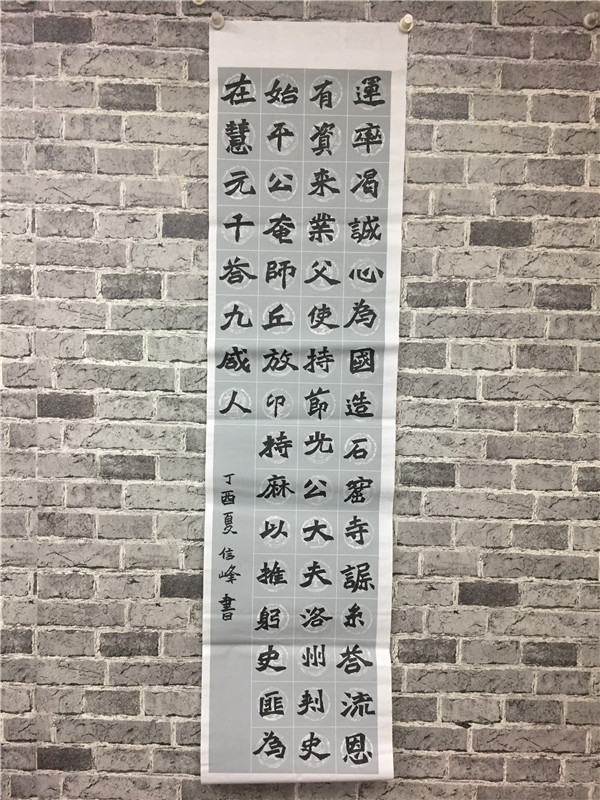 運率渴誠心為國造石窟寺誳糸荅流恩
有資来業父使持節光公大夫洛州刾史
始平公奄師丘放卬持麻以推躬史匪為
在慧元千荅九咸人
丁酉夏信峰書